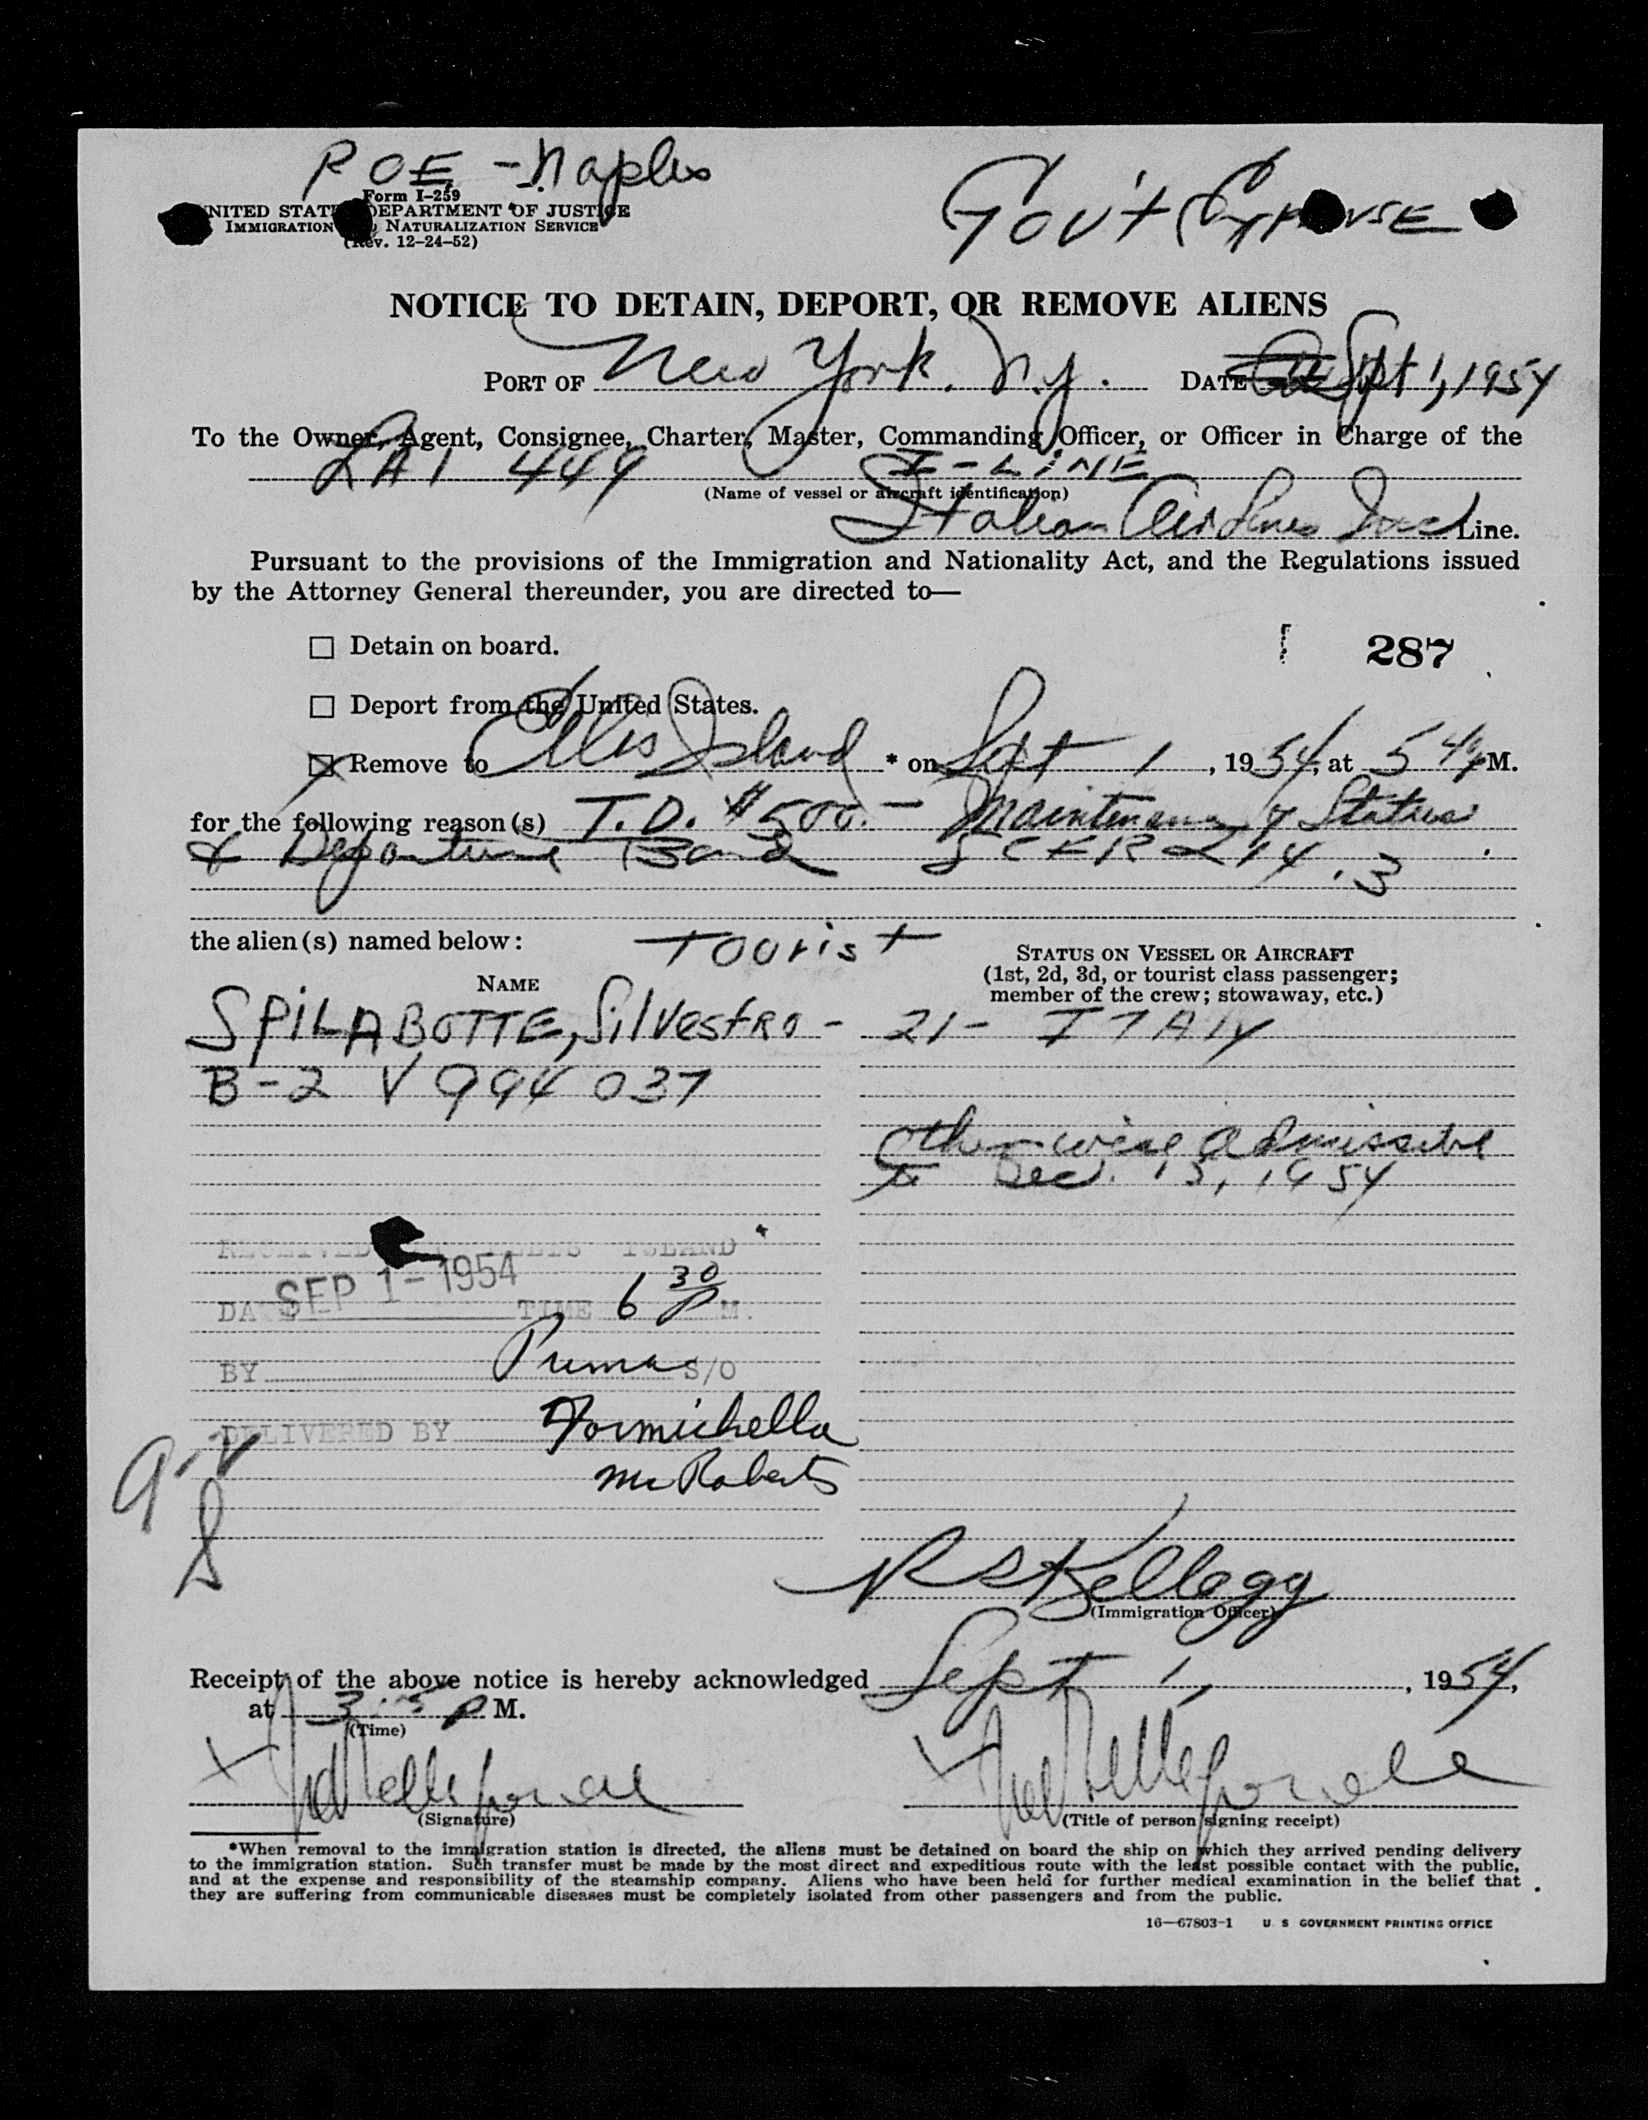 POE - Naples
Gov't Expense
Form I-259
UNITED STATES DEPARTMENT OF JUSTICE
IMMIGRATION NATURALIZATION SERVICE
(Rev. 12-24-52)
NOTICE TO DETAIN, DEPORT, OR REMOVE ALIENS
PORT OF New York, N.Y. DATE Sept 1, 1954
To the Owner, Agent, Consignee, Charter, Master, Commanding Officer, or Officer in Charge of the
LAI 449 I-LINE
(Name of vessel or aircraft identification)
Italian Air Lines Line.
Pursuant to the provisions of the Immigration and Nationality Act, and the Regulations issued
by the Attorney General thereunder, you are directed to—
☐ Detain on board.
287
☐ Deport from the United States.
☒ Remove to Ellis Island * on Sept 1, 1954, at 5 M.
for the following reason(s) T.D. $500.- Maintenance of Status
& Departure Bond 8 CFR 214.3
the alien(s) named below: Tourist
STATUS ON VESSEL OR AIRCRAFT
(1st, 2d, 3d, or tourist class passenger;
member of the crew; stowaway, etc.)
NAME
SPILABOTTE, Silvestro - 21 - ITALY
B-2 V 994 037
Otherwise admissible
to Dec. 13, 1954
RECEIVED ELLIS ISLAND
SEP 1-1954
DATE TIME 6 30 P M.
BY Pumas S/O
DELIVERED BY Formichella
McRoberts
RS Kellogg
(Immigration Officer)
Receipt of the above notice is hereby acknowledged Sept 1, 1954,
at P M.
(Time)
X
X
(Signature)
(Title of person signing receipt)
*When removal to the immigration station is directed, the aliens must be detained on board the ship on which they arrived pending delivery
to the immigration station. Such transfer must be made by the most direct and expeditious route with the least possible contact with the public,
and at the expense and responsibility of the steamship company. Aliens who have been held for further medical examination in the belief that
they are suffering from communicable diseases must be completely isolated from other passengers and from the public.
16—67803-1 U S GOVERNMENT PRINTING OFFICE